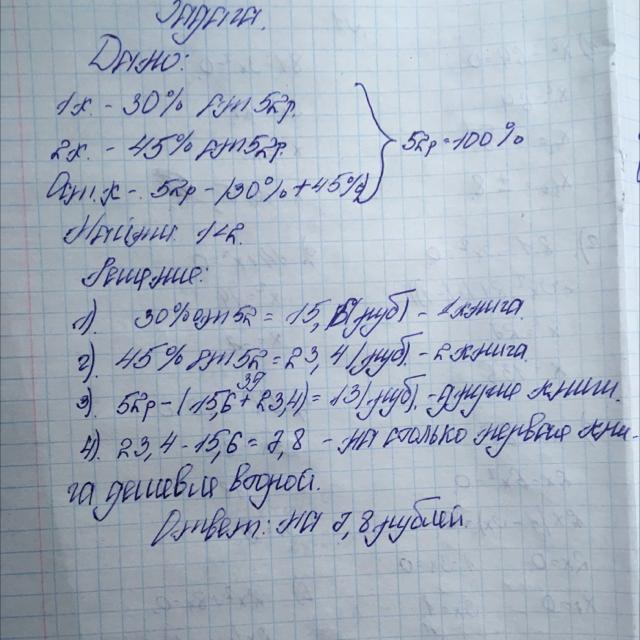 Задача.
Дано:
1к. - 30% от 52р.
2к. - 45% от 52р.
Ост. к - 52р - (30% + 45%)
52р = 100%
Найти 1<2.
Решение:
1). 30% от 52 = 15,6(руб) - 1 книга.
2). 45% от 52 = 23,4(руб). - 2 книга
39
3). 52р - (15,6 + 23,4) = 13(руб). - другие книги.
4). 23,4 - 15,6 = 7,8 - на столько первая кни-
га дешевле второй.
Ответ: на 7,8 рублей